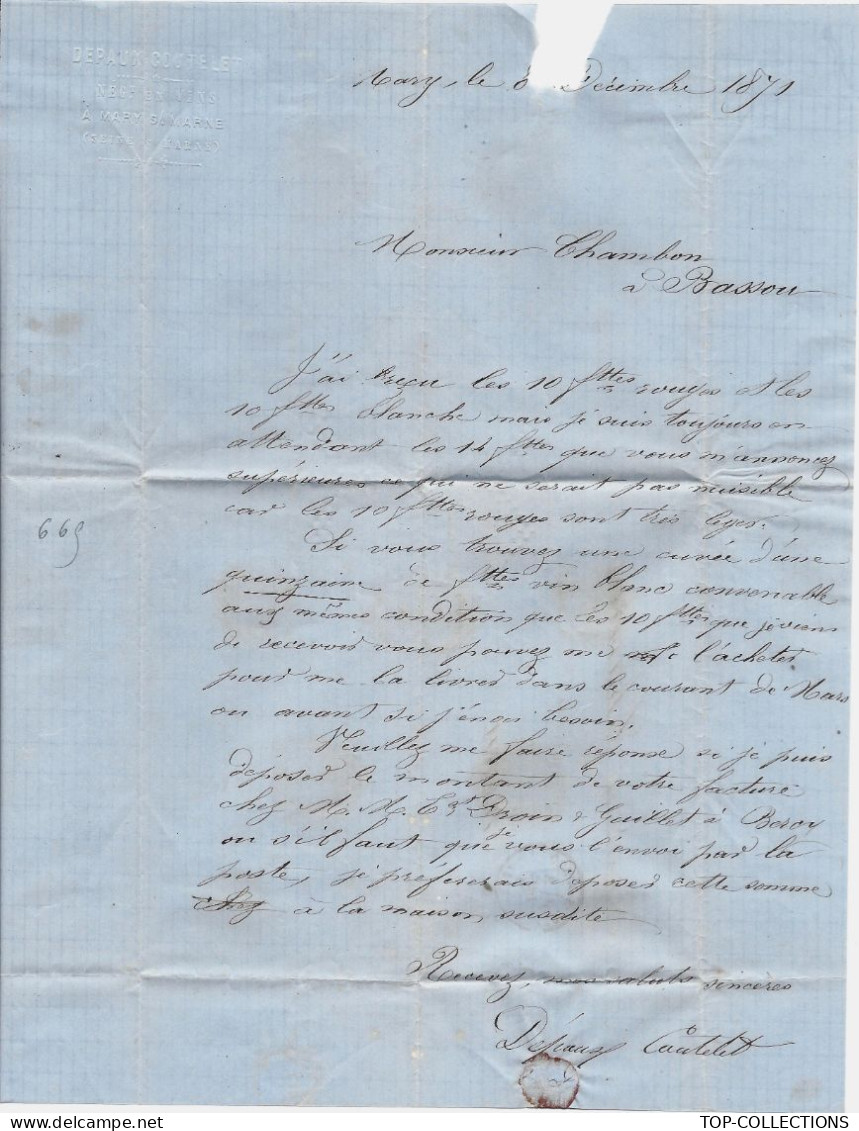 DEPAUX COUTELET
NÉGT EN VINS
À MARY S/MARNE
(SEINE & MARNE)
Mary, le 8 Décembre 1871
Monsieur Chambon
à Bassou
J'ai reçu les 10 fttes rouges et les
10 fttes blanche mais je suis toujours en
attendant les 14 fttes que vous m'annoncez
supérieures ce qui ne serait pas nuisible
car les 10 fttes rouges sont très leger.
Si vous trouvez une cuvée d'une
quinzaine de fttes vin blanc convenable
aux mêmes condition que les 10 fttes que je viens
de recevoir vous pouvez me l'acheter
pour me la livrer dans le courant de Mars
ou avant si j'en ai besoin.
Veuillez me faire réponse si je puis
déposer le montant de votre facture
chez M. M. Droin & Guillet à Bercy
ou s'il faut que je vous l'envoi par la
poste, je préfererais déposer cette somme
chez à la maison susdite
Recevez, mes saluts sincères
Dépaux Coutelet
669
TOP-COLLECTIONS